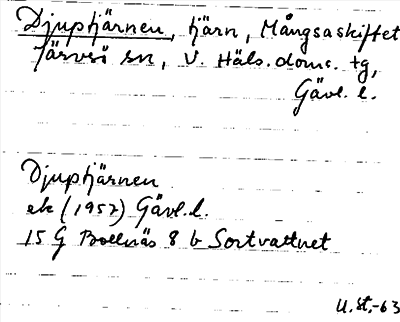 Djuptjärnen, tjärn, Mångsaskiftet
Järvsö sn, V. Häls. doms. tg,
Gävl. l.
Djuptjärnen
ek (1957) Gävl. l.
15 G Bollnäs 8 b Sortvattnet
U. St. -63